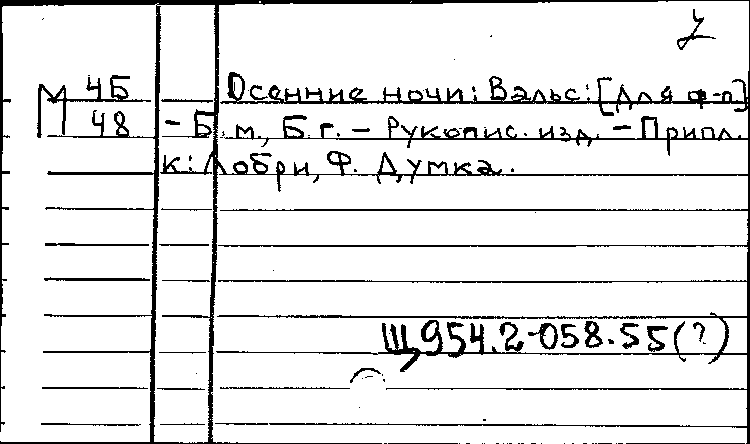 7
М 4Б Осенние ночи: Вальс: [Для ф-п]
48 - Б. м., Б. г. - Рукопис. изд. - Припл.
к: Лобри, Ф. Думка.
Щ954.2-058.55(?)